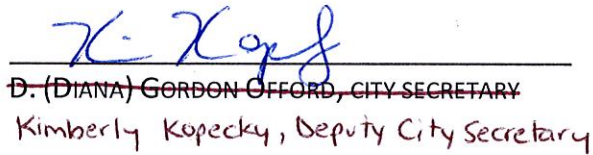 Ki Kopf
D. (DIANA) GORDON OFFORD, CITY SECRETARY
Kimberly Kopecky, Deputy City Secretary